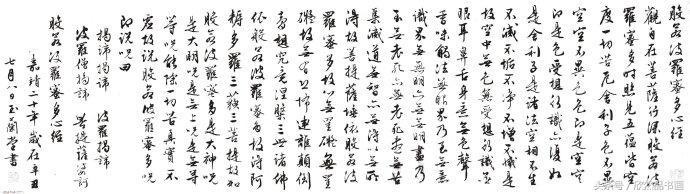 般若波羅蜜多心經
觀自在菩薩行深般若波
羅蜜多時照見五蘊皆空
度一切苦厄舍利子色不異
空空不異色色即是空空
即是色受想行識亦復如
是舍利子是諸法空相不生
不滅不垢不淨不增不減是
故空中無色無受想行識無
眼耳鼻舌身意無色聲
香味觸法無眼界乃至無意
識界無無明亦無無明盡乃
至無老死亦無老死盡無苦
集滅道無智亦無得以無所
得故菩提薩埵依般若波
羅蜜多故心無罣礙無罣
礙故無有恐怖遠離顛倒
夢想究竟涅槃三世諸佛
依般若波羅蜜多故得阿
耨多羅三藐三菩提故知
般若波羅蜜多是大神呪
是大明呪是無上呪是無等
等呪能除一切苦真實不
虛故說般若波羅蜜多呪
即說呪曰
揭諦揭諦 波羅揭諦
波羅僧揭諦 菩提薩婆訶
般若波羅蜜多心經
嘉靖二十年歲在辛丑
七月八日玉蘭堂書
头条号